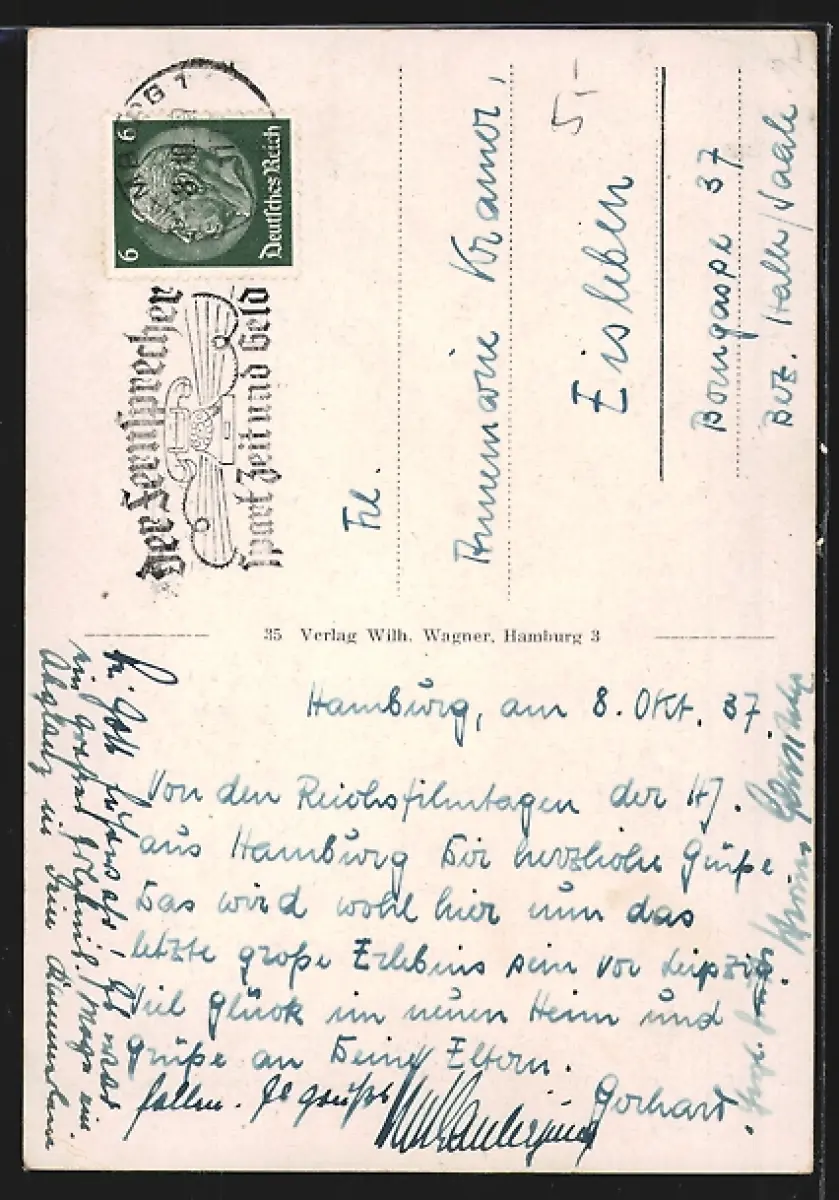 MBURG 1
8.10.
6 6
Deutsches Reich
Der Fernsprecher
spart Zeit und Geld
5,-
Frl.
Annemarie Kramer,
Eisleben
Bomgasse 37
Bez. Halle/Saale
35 Verlag Wilh. Wagner, Hamburg 3
Hamburg, am 8. Okt. 37.
Von den Reichsfilmtagen der HJ.
aus Hamburg Dir herzliche Grüße.
Das wird wohl hier nun das
letzte große Erlebnis sein vor Leipzig.
Viel Glück im neuen Heim und
Grüße an Deine Eltern.
Gerhard
Es war
ein großes Erlebnis. Mag ein
Abglanz in Dein
fallen. Es grüßt